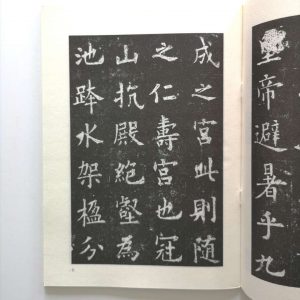 皇帝避暑乎九
成之宮此則隨
之仁壽宮也冠
山抗殿絶壑為
池跨水架楹分